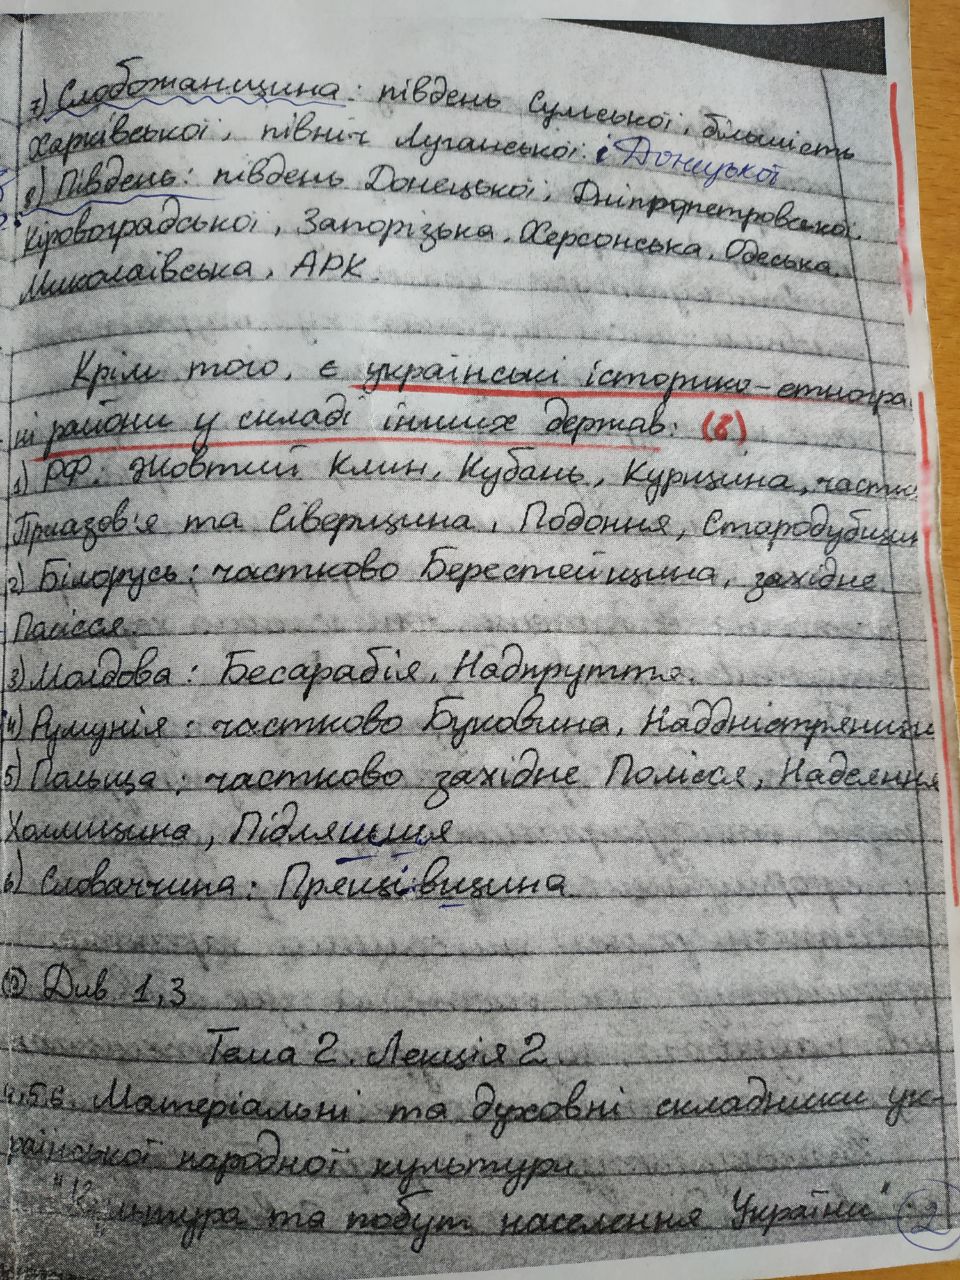 7) Слобожанщина: південь Сумської, більшість
Харківської, північ Луганської. і Донецької
8) Південь: південь Донецької, Дніпропетровської,
Кіровоградської, Запорізька, Херсонська, Одеська,
Миколаївська, АРК.
Крім того, є українські історико-етногра
ні райони у складі інших держав: (8)
1) РФ: Жовтий Клин, Кубань, Курщина, частко
Приазов'я та Сіверщина, Подоння, Стародубщин
2) Білорусь: частково Берестейщина, західне
Полісся.
3) Молдова: Бесарабія, Надпруття.
4) Румунія: частково Буковина, Наддністрянщи
5) Польща: частково західне Полісся, Надсяння
Холмщина, Підляшшя
6) Словаччина: Пряшівщина
Див 1,3
Тема 2. Лекція 2
4,5,6. Матеріальні та духовні складники ук-
раїнської народної культури
та побут населення України" 2